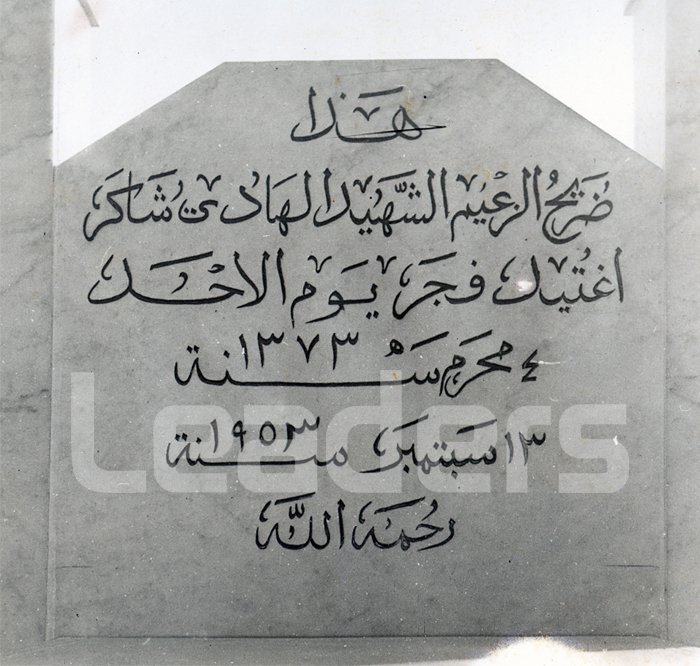 هَذَا
ضَرِيحُ الزَّعِيم الشَّهِيد الهَادِي شَاكَر
اغتُيل فجَر يَوم الأحَد
٤ محَرم سَنة ١٣٧٣هْ
١٣ سَبتمبَر سنة ١٩٥٣
رَحْمَهُ اللَّه
Leaders